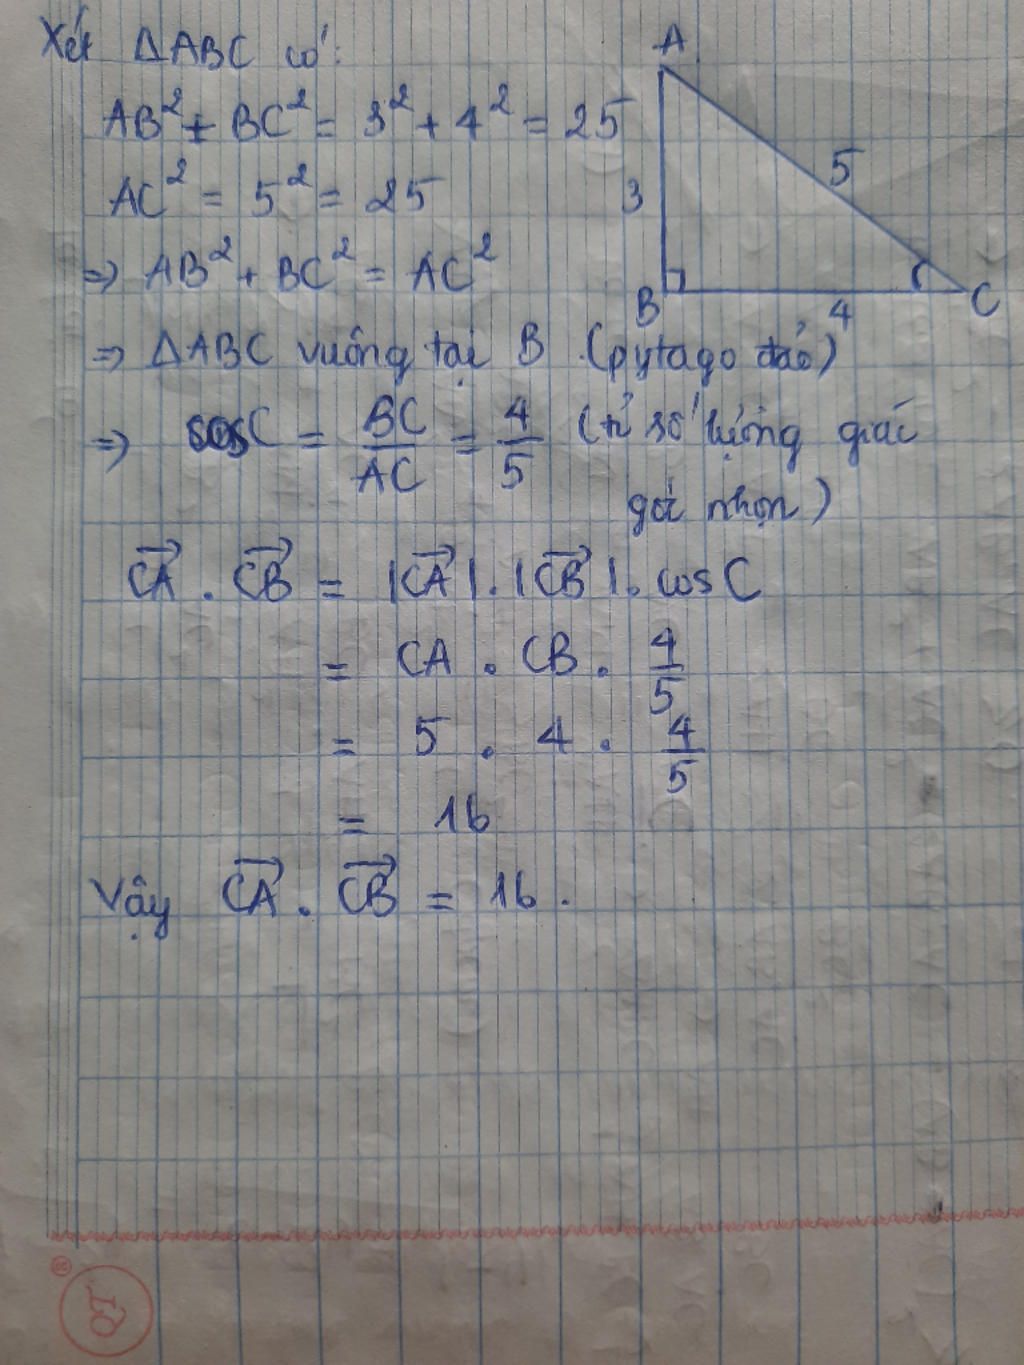 Xét ΔABC có:
AB² + BC² = 3² + 4² = 25
AC² = 5² = 25
⇒ AB² + BC² = AC²
⇒ ΔABC vuông tại B (pytago đảo)
⇒ cosC = BC/AC = 4/5 (tỉ số lượng giác
góc nhọn)
A
5
3
B
4
C
\overrightarrow{CA} . \overrightarrow{CB} = |\overrightarrow{CA}| . |\overrightarrow{CB}| . cosC
= CA . CB . 4/5
= 5 . 4 . 4/5
= 16
Vậy \overrightarrow{CA} . \overrightarrow{CB} = 16 .